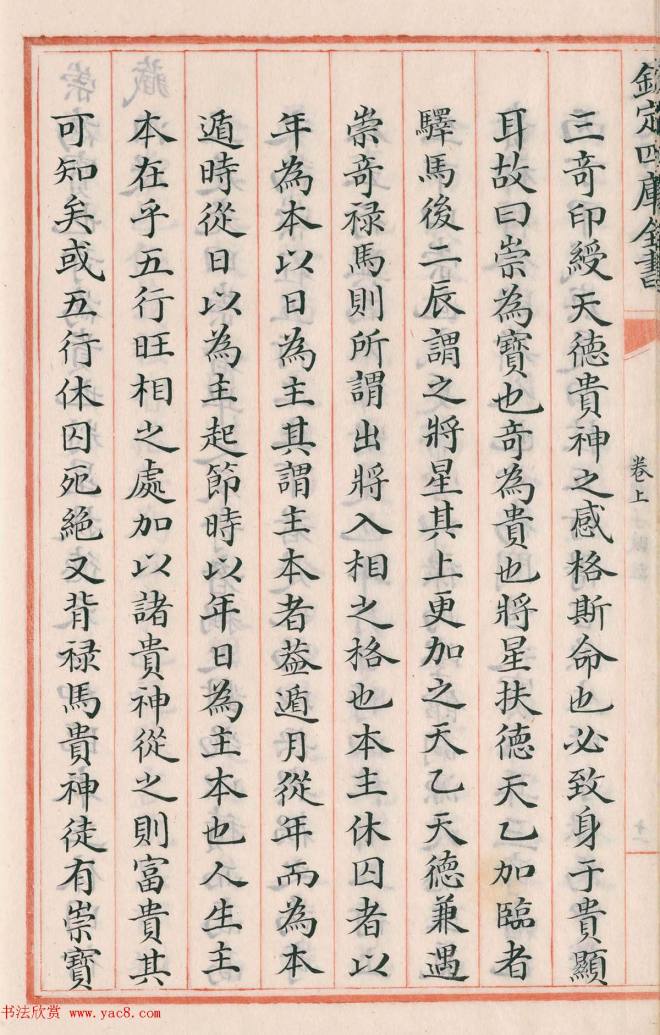 欽定四庫全書
卷上
三奇印綬天德貴神之感格斯命也必致身于貴顯
耳故曰崇為寶也奇為貴也將星扶德天乙加臨者
驛馬後二辰謂之將星其上更加之天乙天德兼遇
崇奇祿馬則所謂出將入相之格也本主休囚者以
年為本以日為主其謂主本者葢遁月從年而為本
遁時從日以為主起節時以年日為主本也人生主
本在乎五行旺相之處加以諸貴神從之則富貴其
可知矣或五行休囚死絶又背祿馬貴神徒有崇寶
书法欣赏 www.yac8.com